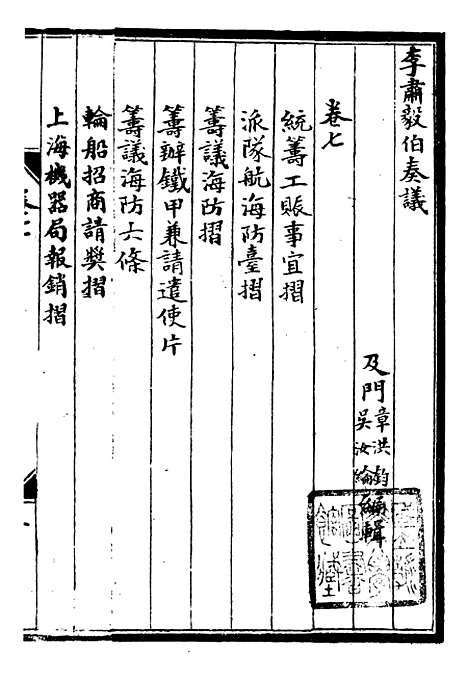 李肅毅伯奏議
及門章洪鈞吳汝綸編輯
卷七
統籌工賑事宜摺
派隊航海防臺摺
籌議海防摺
籌辦鐵甲兼請遣使片
籌議海防六條
輪船招商請獎摺
上海機器局報銷摺